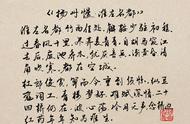 《扬州慢》淮左名都
淮左名都 竹西佳处，解鞍少驻初程。
过春风十里，尽荠麦青青。自胡马窥江
去后，废池乔木，犹厌言兵。渐黄昏清
角吹寒，都在空城。
杜郎俊赏，算而今重到须惊。纵豆
蔻词工，青楼梦好，难赋深情。二十
四桥仍在，波心荡冷月无声。念桥边
红药年年知为谁生。